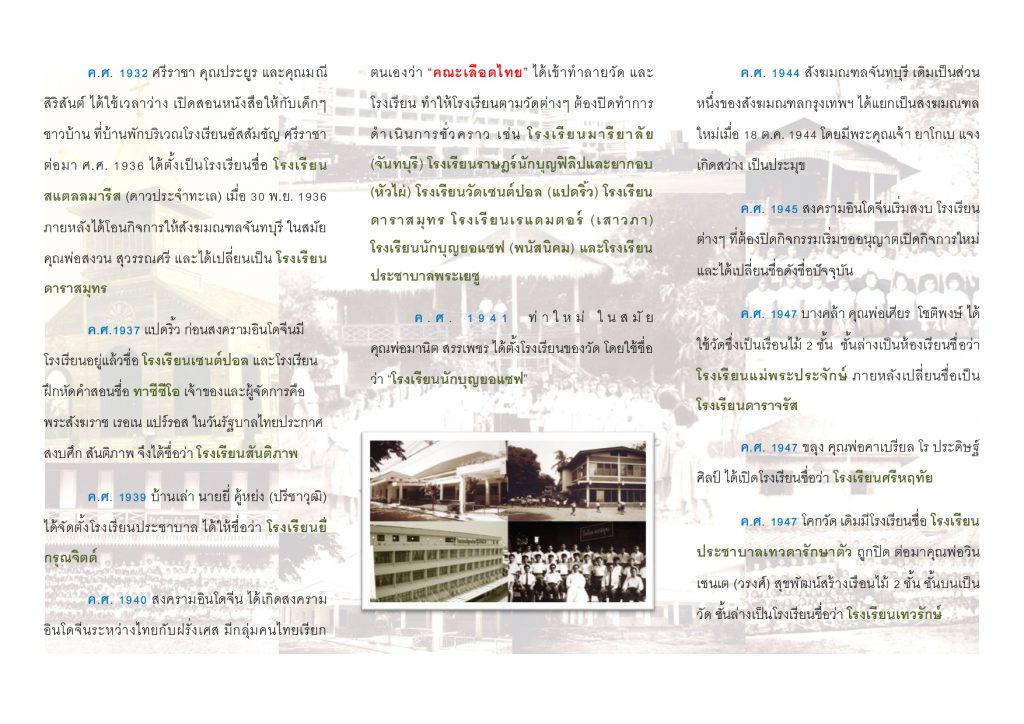 ค.ศ. 1932 ศรีราชา คุณประยูร และคุณมณี
สิริสันต์ ได้ใช้เวลาว่าง เปิดสอนหนังสือให้กับเด็กๆ
ชาวบ้าน ที่บ้านพักบริเวณโรงเรียนอัสสัมชัญ ศรีราชา
ต่อมา ศ.ศ. 1936 ได้ตั้งเป็นโรงเรียนชื่อ โรงเรียน
สแตลลมารีส (ดาวประจำทะเล) เมื่อ 30 พ.ย. 1936
ภายหลังได้โอนกิจการให้สังฆมณฑลจันทบุรี ในสมัย
คุณพ่อสงวน สุวรรณศรี และได้เปลี่ยนเป็น โรงเรียน
ดาราสมุทร
ค.ศ.1937 แปดริ้ว ก่อนสงครามอินโดจีนมี
โรงเรียนอยู่แล้วชื่อ โรงเรียนเซนต์ปอล และโรงเรียน
ฝึกหัดคำสอนชื่อ ทาซีซีโอ เจ้าของและผู้จัดการคือ
พระสังฆราช เรอเน แปร์รอส ในวันรัฐบาลไทยประกาศ
สงบศึก สันติภาพ จึงได้ชื่อว่า โรงเรียนสันติภาพ
ค.ศ. 1939 บ้านเล่า นายยี่ คู้หย่ง (ปรีชาวุฒิ)
ได้จัดตั้งโรงเรียนประชาบาล ได้ให้ชื่อว่า โรงเรียนยี่
กรุณจิตต์
ค.ศ. 1940 สงครามอินโดจีน ได้เกิดสงคราม
อินโดจีนระหว่างไทยกับฝรั่งเศส มีกลุ่มคนไทยเรียก
ตนเองว่า “คณะเลือดไทย” ได้เข้าทำลายวัด และ
โรงเรียน ทำให้โรงเรียนตามวัดต่างๆ ต้องปิดทำการ
ดำเนินการชั่วคราว เช่น โรงเรียนมารียาลัย
(จันทบุรี) โรงเรียนราษฎร์นักบุญฟิลิปและยากอบ
(หัวไผ่) โรงเรียนวัดเซนต์ปอล (แปดริ้ว) โรงเรียน
ดาราสมุทร โรงเรียนเรแดมตอร์ (เสาวภา)
โรงเรียนนักบุญยอแซฟ (พนัสนิคม) และโรงเรียน
ประชาบาลพระเยซู
ค.ศ. 1941 ท่าใหม่ ในสมัย
คุณพ่อมานิต สรรเพชร ได้ตั้งโรงเรียนของวัด โดยใช้ชื่อ
ว่า “โรงเรียนนักบุญยอแซฟ”
ค.ศ. 1944 สังฆมณฑลจันทบุรี เดิมเป็นส่วน
หนึ่งของสังฆมณฑลกรุงเทพฯ ได้แยกเป็นสงฆมณฑล
ใหม่เมื่อ 18 ต.ค. 1944 โดยมีพระคุณเจ้า ยาโกเบ แจง
เกิดสว่าง เป็นประมุข
ค.ศ. 1945 สงครามอินโดจีนเริ่มสงบ โรงเรียน
ต่างๆ ที่ต้องปิดกิจกรรมเริ่มขออนุญาตเปิดกิจการใหม่
และได้เปลี่ยนชื่อดังชื่อปัจจุบัน
ค.ศ. 1947 บางคล้า คุณพ่อเศียร โชติพงษ์ ได้
ใช้วัดซึ่งเป็นเรือนไม้ 2 ชั้น ชั้นล่างเป็นห้องเรียนชื่อว่า
โรงเรียนแม่พระประจักษ์ ภายหลังเปลี่ยนชื่อเป็น
โรงเรียนดาราจรัส
ค.ศ. 1947 ขลุง คุณพ่อคาเบรียล โร ประดิษฐ์
ศิลป์ ได้เปิดโรงเรียนชื่อว่า โรงเรียนศรีหฤทัย
ค.ศ. 1947 โคกวัด เดิมมีโรงเรียนชื่อ โรงเรียน
ประชาบาลเทวดารักษาตัว ถูกปิด ต่อมาคุณพ่อวิน
เซนเต (วรงศ์) สุขพัฒน์สร้างเรือนไม้ 2 ชั้น ชั้นบนเป็น
วัด ชั้นล่างเป็นโรงเรียนชื่อว่า โรงเรียนเทวรักษ์